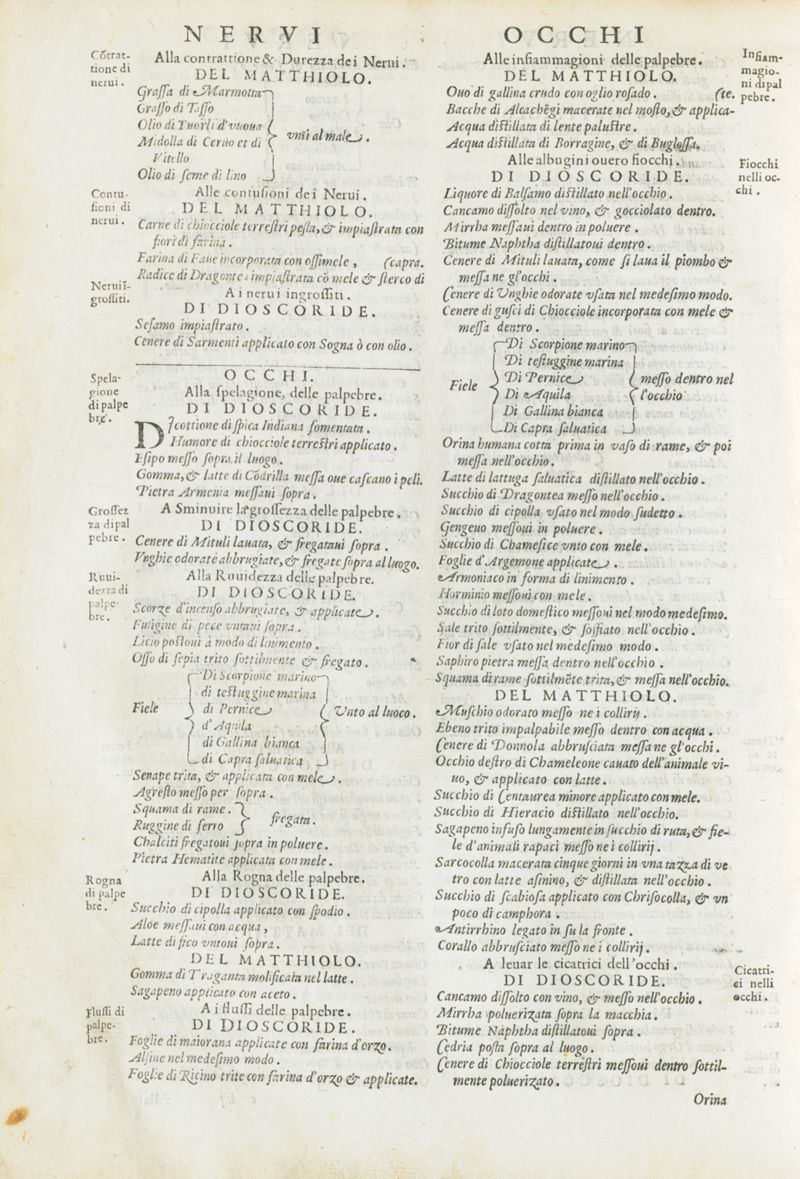 NERVI
Cõtrat-
tione di
nerui.
Alla contrattione & Durezza dei Nerui.
DEL MATTHIOLO.
Grassa di Marmotta
Grasso di Tasso
Olio di Tuorli d'vuoua
Midolla di Ceruo et di
Vitello
Olio di seme di lino
vnti al male.
Contu-
sioni di
nerui.
Alle contusioni dei Nerui.
DEL MATTHIOLO.
Carne di chiocciole terrestri pesta, & impiastrata con
fiori di farina.
Farina di Faue incorporata con ossimele, (capra.
Radica di Dragontea impiastrata cō mele & sterco di
Neruiī-
grossiti.
Ai nerui ingrossiti.
DI DIOSCORIDE.
Sesamo impiastrato.
Cenere di Sarmenti applicato con Sogna ò con olio.
OCCHI.
Spela-
gione
di palpe
bre.
Alla spelagione, delle palpebre.
DI DIOSCORIDE.
DIcottione di spica Indiana fomentata.
Humore di chiocciole terrestri applicato.
Esipo messo sopra il luogo.
Gomma, & latte di Cōdrilla messa oue cascano i peli.
Pietra Armenia messaui sopra.
Grossez
za di pal
pebre.
A Sminuire la grossezza delle palpebre.
DI DIOSCORIDE.
Cenere di Mituli lauata, & fregataui sopra.
Vnghie odorate abbrugiate, & fregate sopra al luogo.
Ruui-
dezza di
palpe-
bre.
Alla Ruuidezza delle palpebre.
DI DIOSCORIDE.
Scorze d'incenso abbrugiate, & applicate.
Fuligine di pece vntaui sopra.
Licio postoui à modo di linimento.
Osso di sepia trito sottilmente & fregato.
Fiele
Di Scorpione marino
di testuggine marina
di Pernice
d'Aquila
di Gallina bianca
di Capra saluatica
Vnto al luoco.
Senape trita, & applicata con mele.
Agresto messo per sopra.
Squama di rame.
Ruggine di ferro
fregata.
Chalciti fregatoui sopra in poluere.
Pietra Hematite applicata con mele.
Rogna
di palpe
bre.
Alla Rogna delle palpebre.
DI DIOSCORIDE.
Succhio di cipolla applicato con spodio.
Aloe messaui con acqua,
Latte di fico vntoui sopra.
DEL MATTHIOLO.
Gomma di Traganta molificata nel latte.
Sagapeno applicato con aceto.
Flussi di
palpe-
bre.
Ai flussi delle palpebre.
DI DIOSCORIDE.
Foglie di maiorana applicate con farina d'orzo.
Alsine nel medesimo modo.
Foglie di Ricino trite con farina d'orzo & applicate.
OCCHI
Infiam-
magio-
ni di pal
pebre.
Alle infiammagioni delle palpebre.
DEL MATTHIOLO.
Ouo di gallina crudo con oglio rosado. (te.
Bacche di Alcachēgi macerate nel mosto, & applica-
Acqua distillata di lente palustre.
Acqua distillata di Borragine, & di Buglossa.
Fiocchi
nelli oc-
chi.
Alle albugini ouero fiocchi.
DI DIOSCORIDE.
Liquore di Balsamo distillato nell'occhio.
Cancamo dissolto nel vino, & gocciolato dentro.
Mirrha messaui dentro in poluere.
Bitume Naphtha distillatoui dentro.
Cenere di Mituli lauata, come si laua il piombo &
messa ne gl'occhi.
Cenere di Vnghie odorate vsata nel medesimo modo.
Cenere di gusci di Chiocciole incorporata con mele &
messa dentro.
Fiele
Di Scorpione marino
Di testuggine marina
Di Pernice
Di Aquila
Di Gallina bianca
Di Capra saluatica
messo dentro nel
l'occhio
Orina humana cotta prima in vaso di rame, & poi
messa nell'occhio.
Latte di lattuga saluatica distillato nell'occhio.
Succhio di Dragontea messo nell'occhio.
Succhio di cipolla vsato nel modo sudetto.
Gengeuo messoui in poluere.
Succhio di Chamesice vnto con mele.
Foglie d'Argemone applicate.
Armoniaco in forma di linimento.
Horminio messoui con mele.
Succhio di loto domestico messoui nel modo medesimo.
Sale trito sottilmente, & soffiato nell'occhio.
Fior di sale vsato nel medesimo modo.
Saphiro pietra messa dentro nell'occhio.
Squama di rame sottilmēte trita, & messa nell'occhio.
DEL MATTHIOLO.
Muschio odorato messo ne i collirij.
Ebeno trito impalpabile messo dentro con acqua.
Cenere di Donnola abbrusciata messa ne gl'occhi.
Occhio destro di Chameleone cauato dell'animale vi-
uo, & applicato con latte.
Succhio di Centaurea minore applicato con mele.
Succhio di Hieracio distillato nell'occhio.
Sagapeno infuso lungamente in succhio di ruta, & fie-
le d'animali rapaci messo ne i collirij.
Sarcocolla macerata cinque giorni in vna tazza di ve
tro con latte asinino, & distillata nell'occhio.
Succhio di scabiosa applicato con Chrisocolla, & vn
poco di camphora.
Antirrhino legato in su la fronte.
Corallo abbrusciato messo ne i collirij.
Cicatri-
ci nelli
occhi.
A leuar le cicatrici dell'occhi.
DI DIOSCORIDE.
Cancamo dissolto con vino, & messo nell'occhio.
Mirrha poluerizata sopra la macchia.
Bitume Naphtha distillatoui sopra.
Cedria posta sopra al luogo.
Cenere di Chiocciole terrestri messoui dentro sottil-
mente poluerizato.
Orina